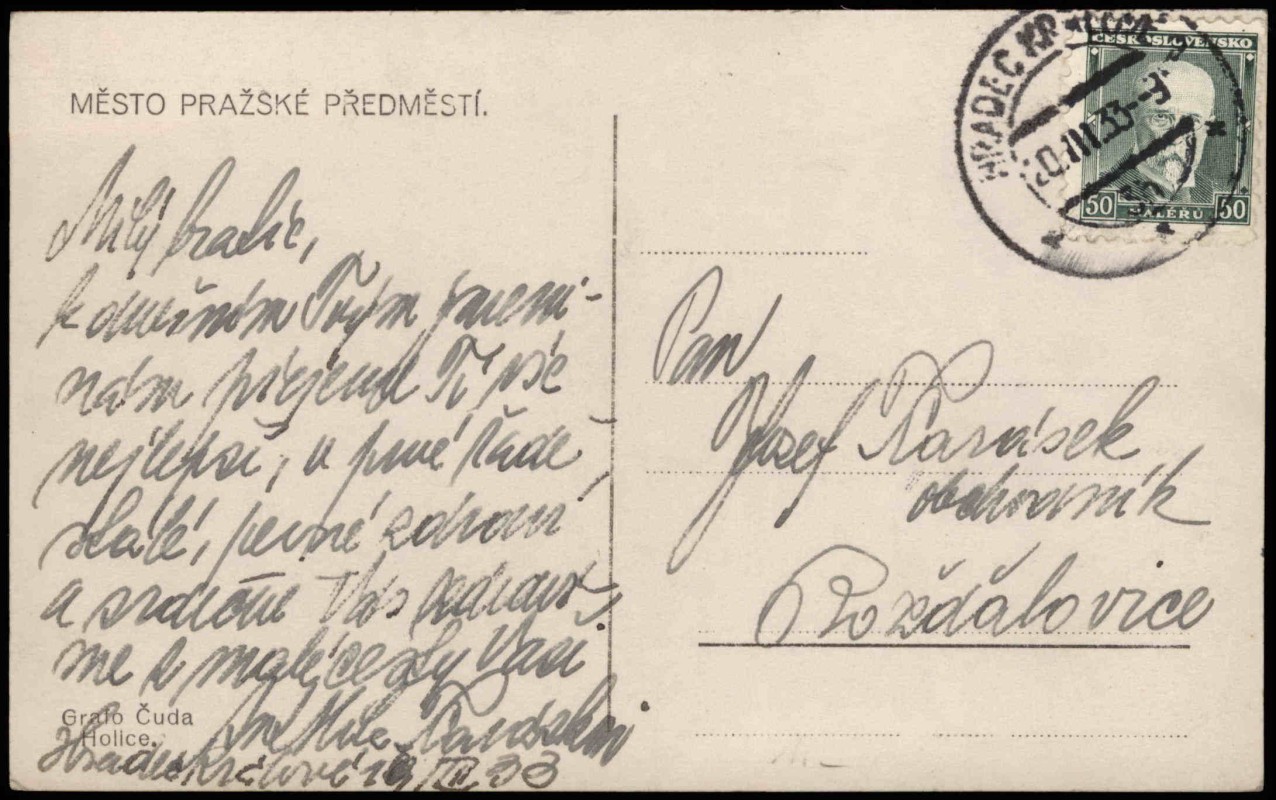 MĚSTO PRAŽSKÉ PŘEDMĚSTÍ.
Milý bratře,
k dnešním Tvým jmeni-
nám přejeme Ti vše
nejlepší, v prvé řadě
stálé, pevné zdraví
a srdečně Vás zdraví-
me z malé cesty Vaši
Karáskovi
Hradec Králové 19/III 33
Grafo Čuda
Holice.
HRADEC KRÁLOVÉ
20.III.33
ČESKOSLOVENSKO
50 HALÉŘŮ 50
Pan
Josef Karásek
obchodník
Rožďálovice